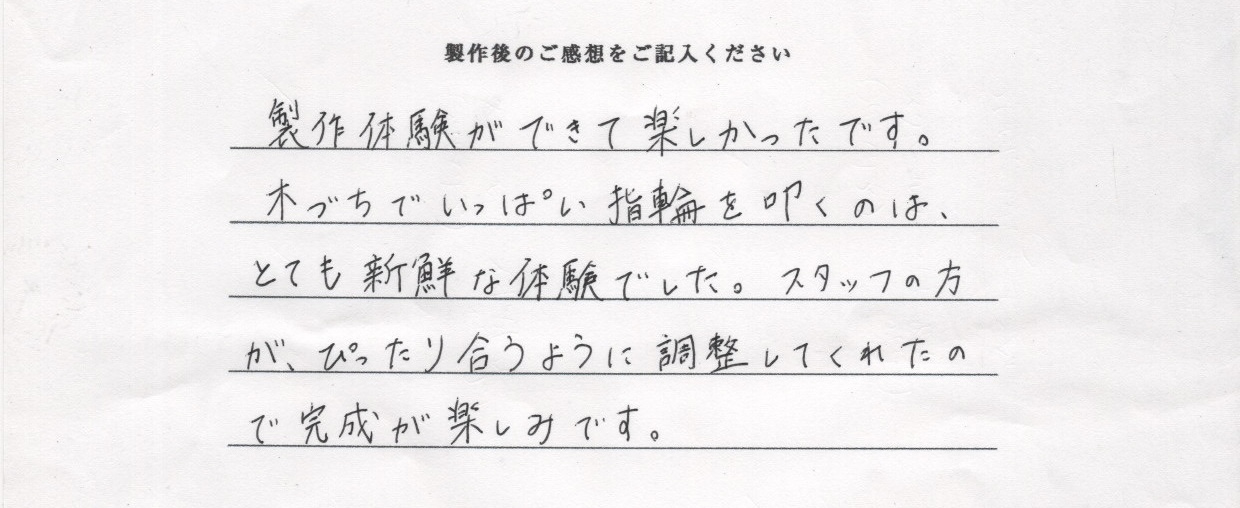 製作後のご感想をご記入ください
製作体験ができて楽しかったです。
木づちでいっぱい指輪を叩くのは、
とても新鮮な体験でした。スタッフの方
が、ぴったり合うように調整してくれたの
で完成が楽しみです。